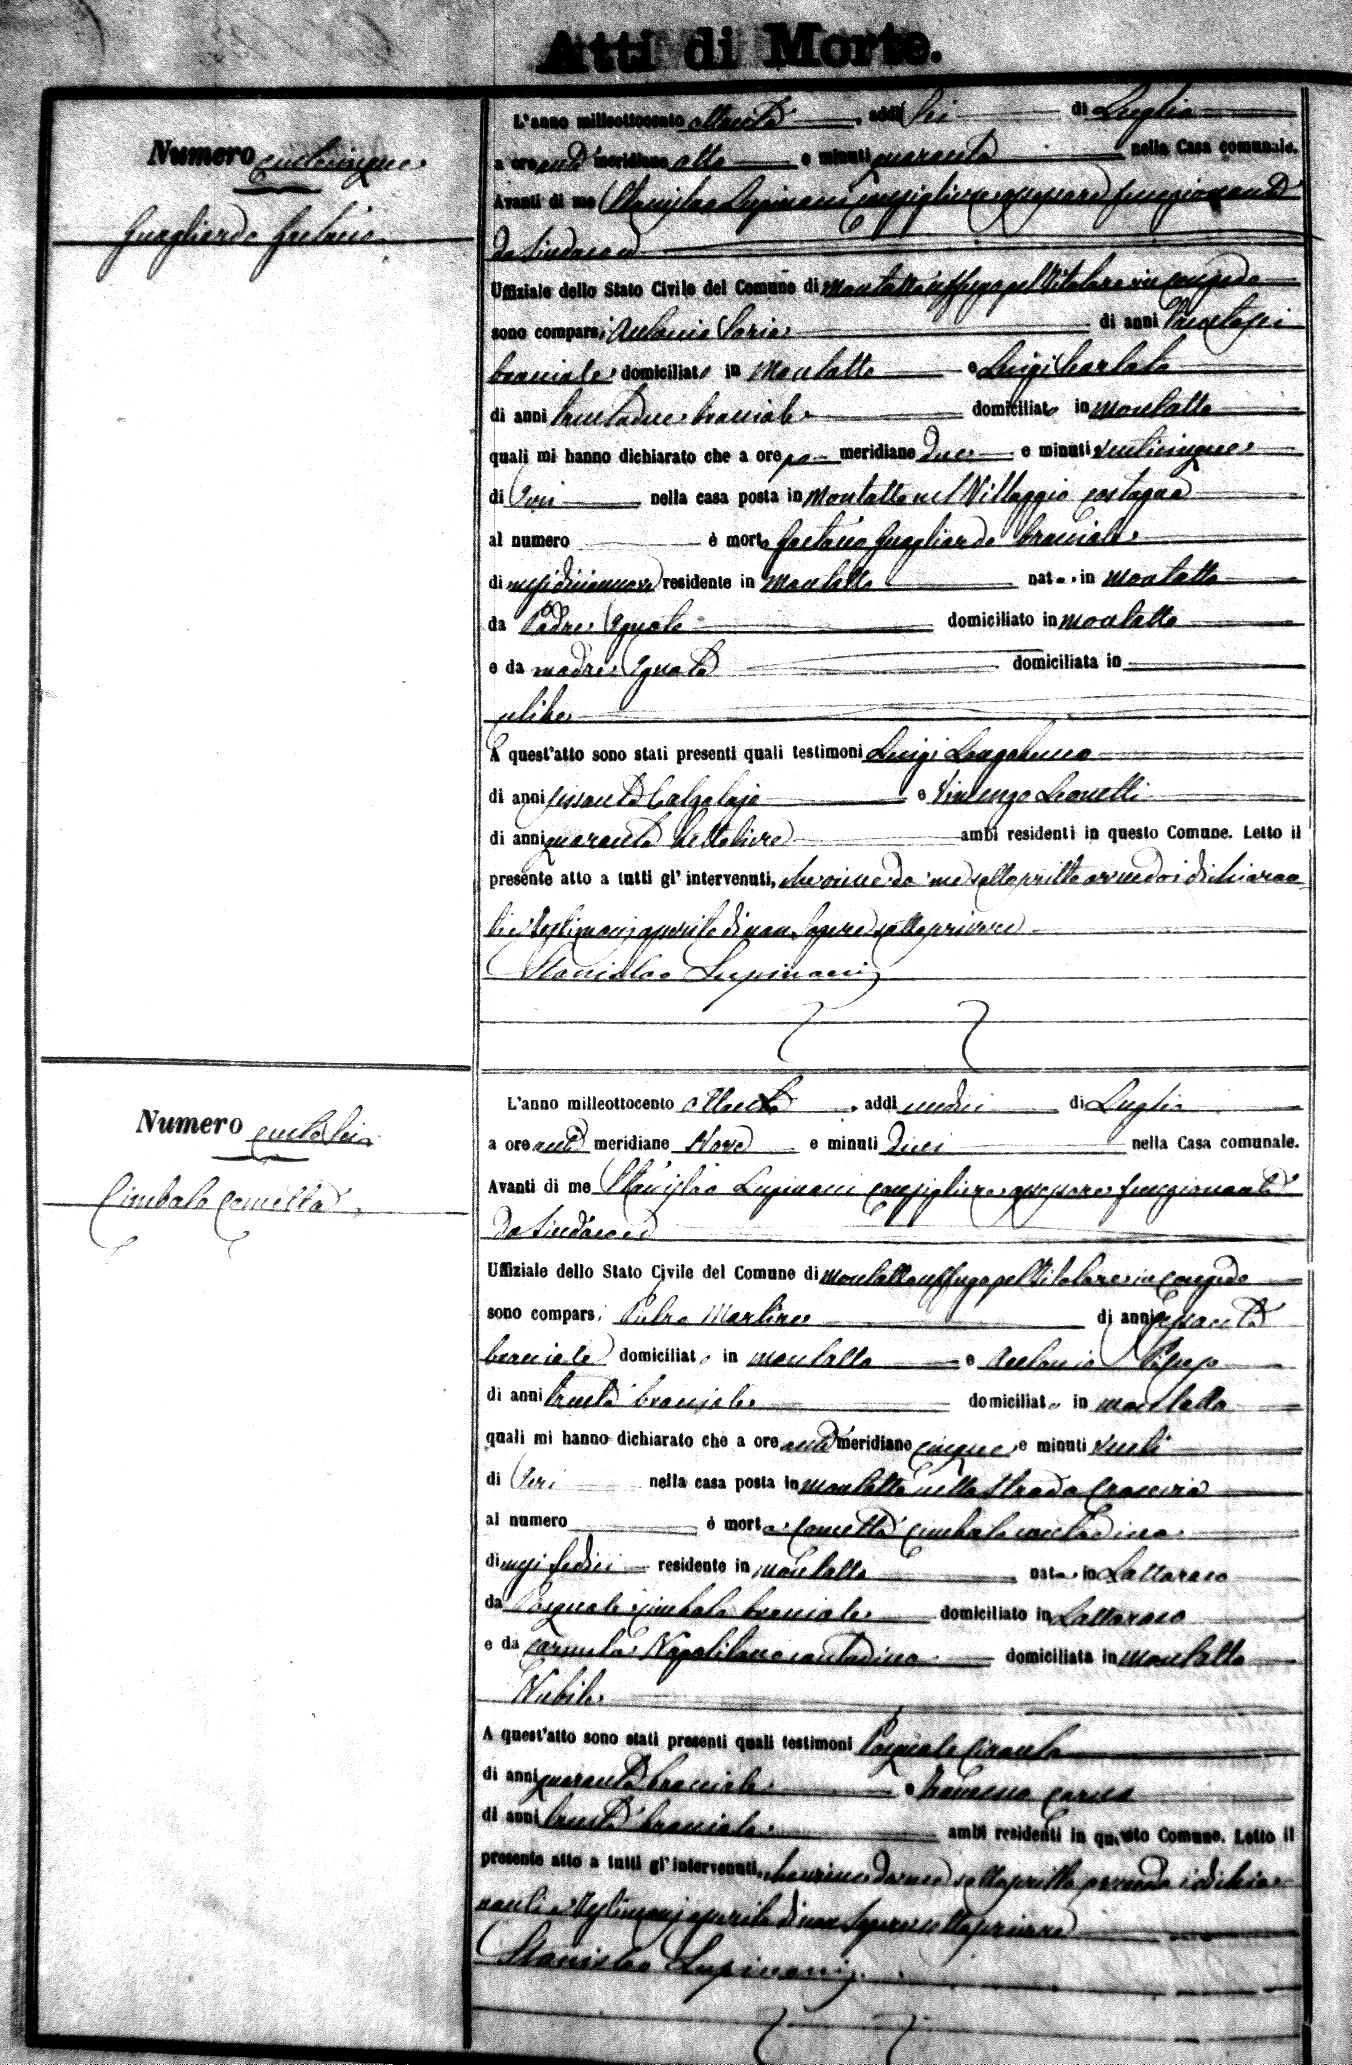 Atti di Morte.
Numero
Guagliardo Gaetano
L'anno milleottocento ottanta, addì sei di Luglio
a ore anti meridiane otto e minuti quaranta nella Casa comunale.
Avanti di me Stanislao Lupinacci Consigliere assessore funzionante
da Sindaco ed
Uffiziale dello Stato Civile del Comune di Montalto Uffugo pel Titolare in congedo
sono comparsi Antonio di anni Ventisei
bracciale domiciliato in Montalto e Luigi Scarlato
di anni trentadue bracciale domiciliato in Montalto
quali mi hanno dichiarato che a ore po meridiane due e minuti venticinque
di Ieri nella casa posta in Montalto nel Villaggio
al numero è morto Gaetano Guagliardo bracciale
di mesi diciannove residente in Montalto nato in Montalto
da Padre Ignoto domiciliato in Montalto
e da madre Ignota domiciliata in
celibe
A quest'atto sono stati presenti quali testimoni Luigi
di anni sessanta Calzolajo e Vincenzo Leonetti
di anni quaranta ambi residenti in questo Comune. Letto il
presente atto a tutti gl'intervenuti, che viene da me sottoscritto avendo i dichiaran
ti e testimonj asserito di non sapere sottoscrivere
Stanislao Lupinacci
Numero ventisei
Cimbalo Concetta
L'anno milleottocento ottanta, addì undici di Luglio
a ore anti meridiane Nove e minuti dieci nella Casa comunale.
Avanti di me Stanislao Lupinacci Consigliere assessore funzionante
da Sindaco ed
Uffiziale dello Stato Civile del Comune di Montalto Uffugo pel Titolare in congedo
sono comparsi Pietro Martire di anni sessanta
bracciale domiciliato in Montalto e Antonio
di anni trenta bracciale domiciliato in Montalto
quali mi hanno dichiarato che a ore anti meridiane cinque e minuti venti
di Ieri nella casa posta in Montalto nella Strada
al numero è morta Concetta Cimbalo contadina
di mesi sedici residente in Montalto nata in Lattaraco
da Pasquale Cimbalo bracciale domiciliato in Lattaraco
e da Carmela Napolitano contadina domiciliata in Montalto
Nubile
A quest'atto sono stati presenti quali testimoni Pasquale
di anni quaranta bracciale e Francesco
di anni trenta bracciale ambi residenti in questo Comune. Letto il
presente atto a tutti gl'intervenuti, da me sottoscritto avendo i dichia
ranti e testimonj asserito di non sapere sottoscrivere
Stanislao Lupinacci